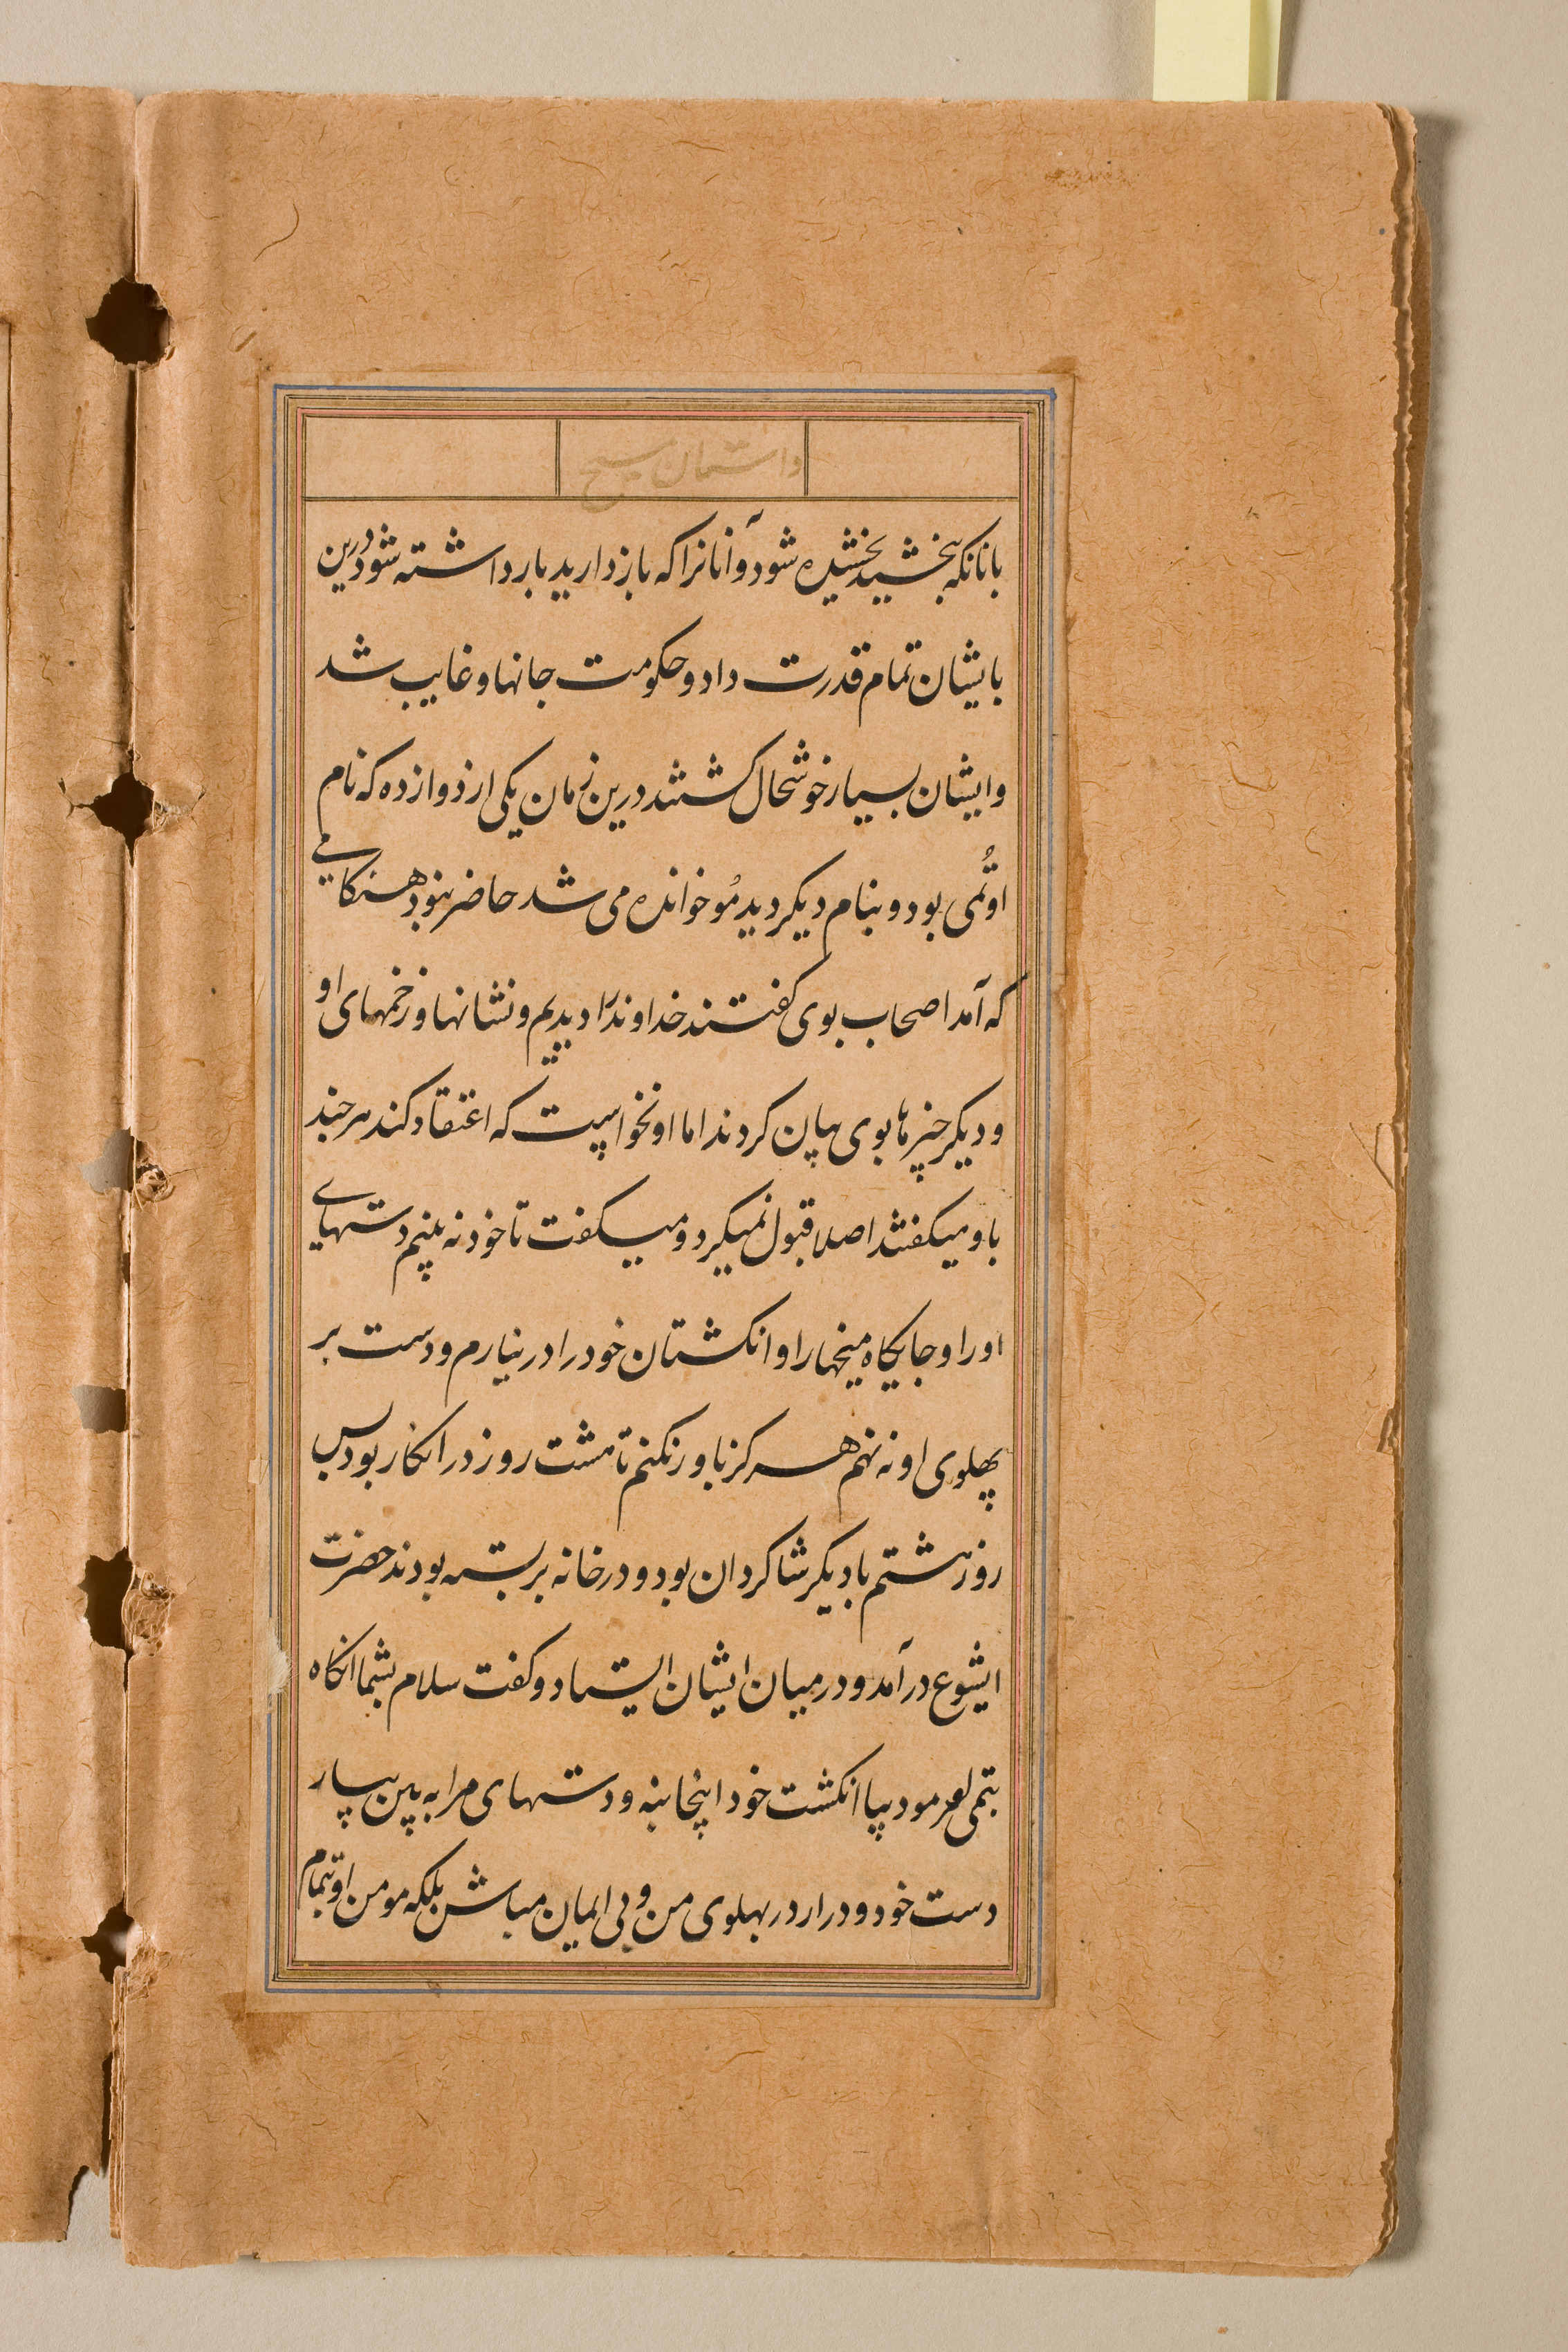 داستان مسیح
بانانکه بخشید بخشیده شود و آنانرا که بازدارید بازداشته شود درین
بایشان تمام قدرت داد و حکومت جانها و غایب شد
و ایشان بسیار خوشحال کشتند درین زمان یکی از دوازده که نام
او تُمی بود و بنام دیکر دیدمُو خوانده می شد حاضر نبود هنکامی
که آمد اصحاب بوی کفتند خداوند را دیدیم و نشانها و زخمهای او
و دیکر چیزها بوی بیان کردند اما او نخواست که اعتقاد کند هرچند
باو میکفتند اصلا قبول نمیکرد و میکفت تا خود نه بینم دستهای
او را و جایکاه میخها را و انکشتان خود را در نیارم و دست بر
پهلوی او نه نهم هرکز باور نکنم تا هشت روز در انکار بود پس
روز هشتم با دیکر شاکردان بود و در خانه بر بسته بودند حضرت
ایشوع در آمد و در میان ایشان ایستاد و کفت سلام بشما انکاه
بتمی فرمود بیا انکشت خود اینجا بنه و دستهای مرا به بین بیار
دست خود و درار در پهلوی من و بی ایمان مباش بلکه مومن او بتمام